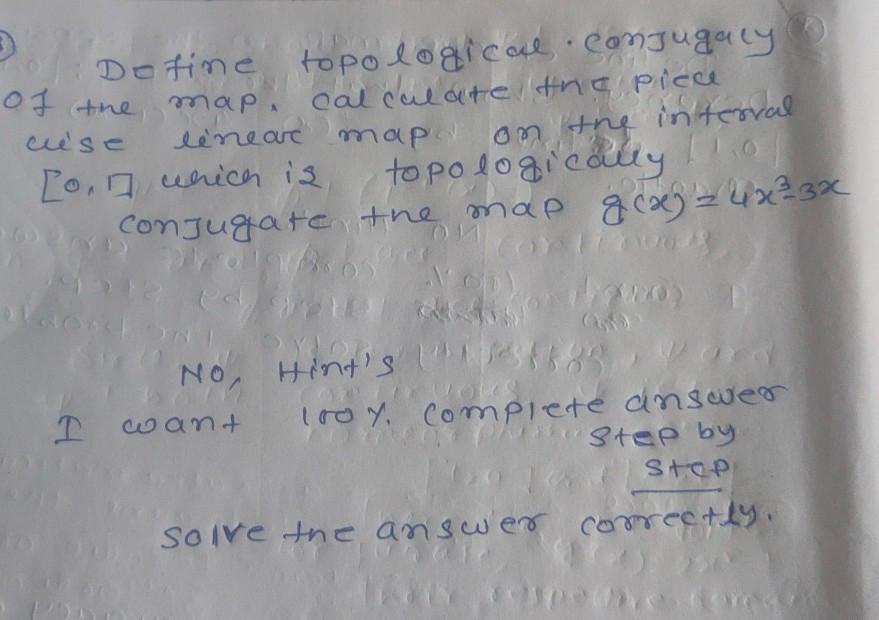 Define topological. conjugacy
of the map. calculate the piece
wise linear map on the interval
[0,1] which is topologically
conjugate the map g(x) = 4x³-3x
No, Hint's
I want 100% complete answer
step by
step
solve the answer correctly.